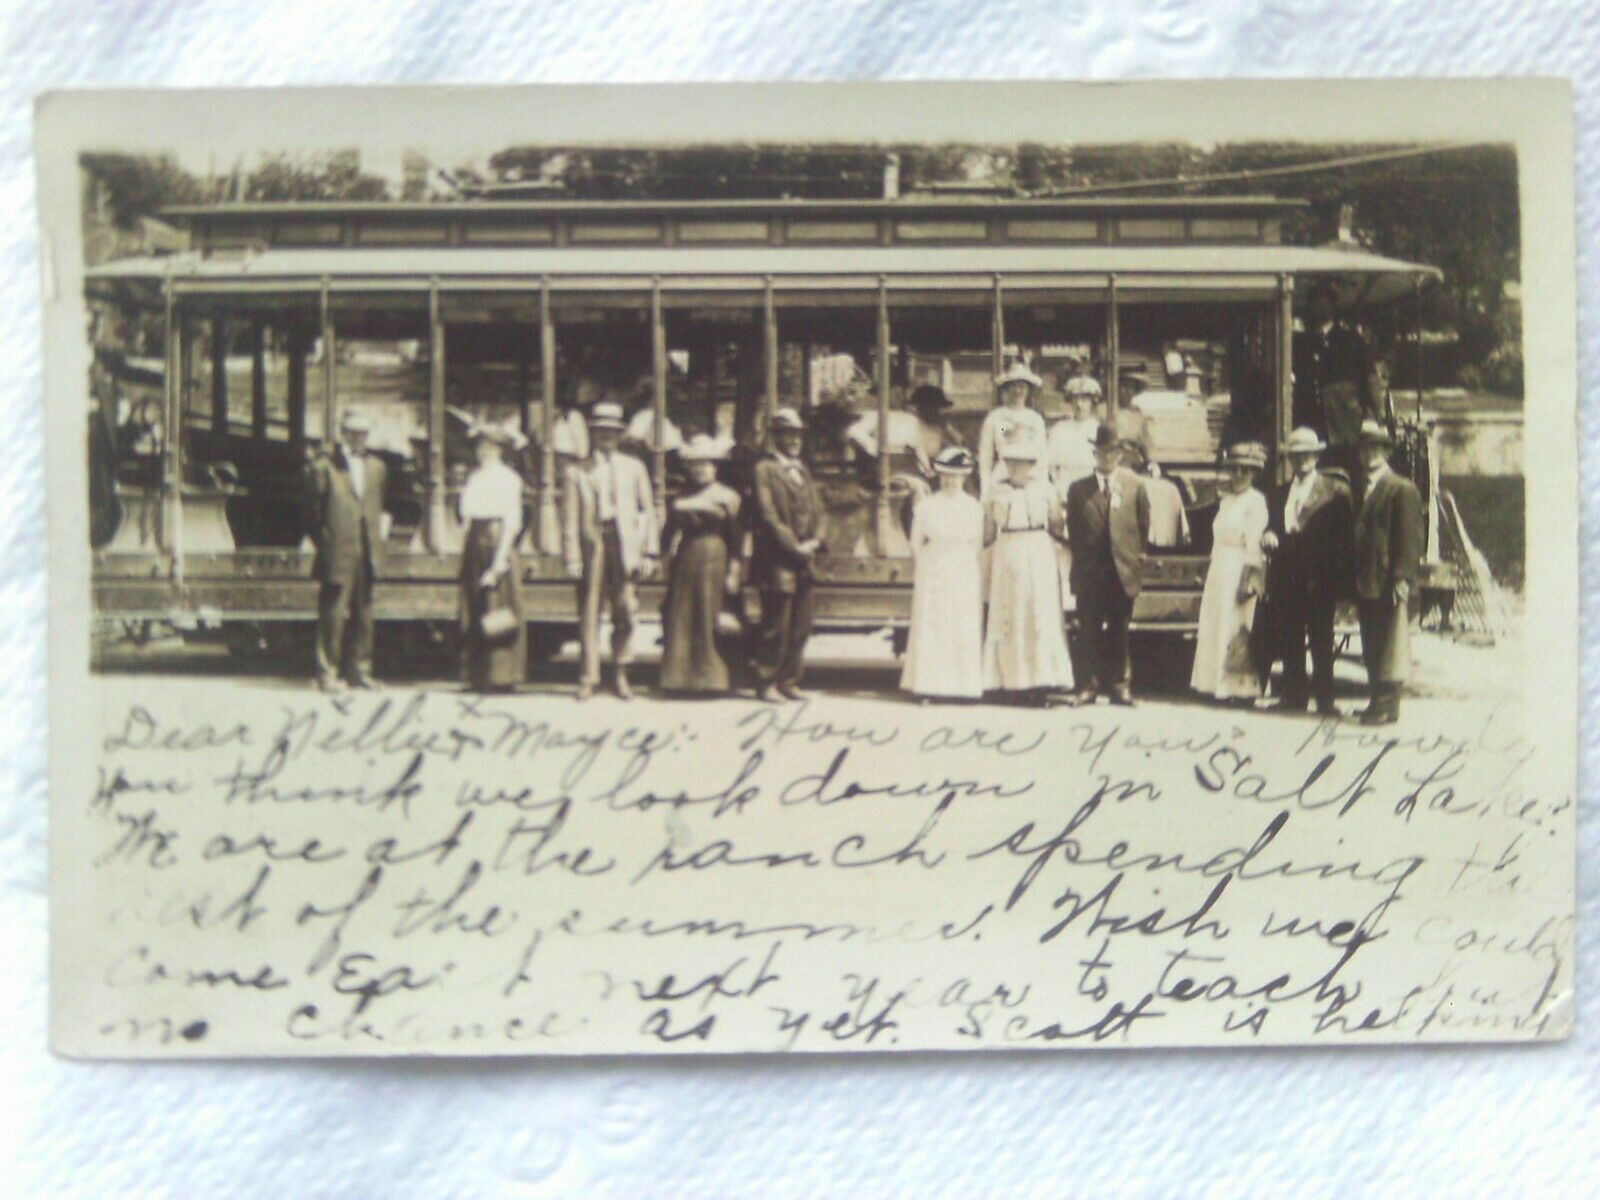 Dear Nellie & Mayce: How are you? How do
you think we look down in Salt Lake?
We are at the ranch spending the
rest of the summer. Wish we could
come East next year to teach but
no chance as yet. Scott is helping